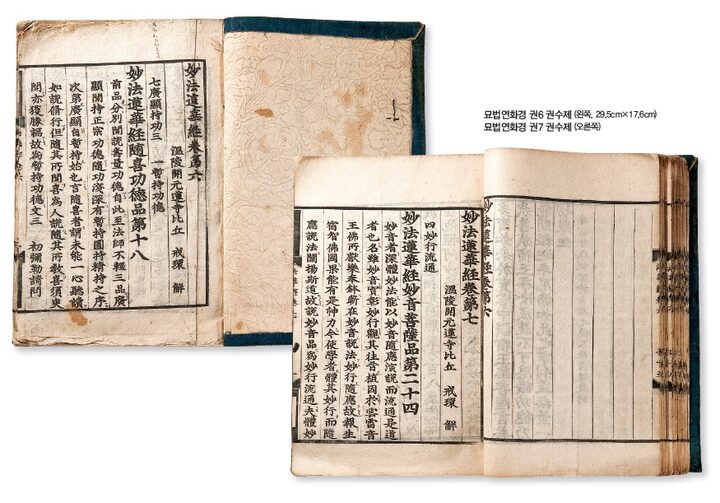 묘법연화경 권6 권수제 (왼쪽, 29.5cm×17.6cm)
묘법연화경 권7 권수제 (오른쪽)
妙法蓮華經卷第六
溫陵開元蓮寺比丘 戒環 解
七廣顯持功三 一暫持功德
妙法蓮華經隨喜功德品第十八
前品分別聞說壽量功德自此至法師不輕三品廣
顯聞持正宗功德隨功淺深有暫持圓持精持之序
次第廣顯自暫持始也言隨喜者謂未能一心聽讀
如說脩行但隨其所聞喜爲人說隨其所教喜須臾
聞亦獲勝福故為暫持功德文三 初彌勒請問
妙法蓮華經卷第六
妙法蓮華經卷第七
溫陵開元蓮寺比丘 戒環 解
四妙行流通
妙法蓮華經妙音菩薩品第二十四
妙音者深體妙法能以妙音隨應演說而流通是道
者也名雖妙音實彰妙行觀其往昔植因於雲雷音
王佛所獻樂奉鉢在妙音說法妙行隨應故報生
宿智佛國果能有是神力今使學者體其妙行而隨
應說法闡揚斯道故說妙音品爲妙行流通夫體妙